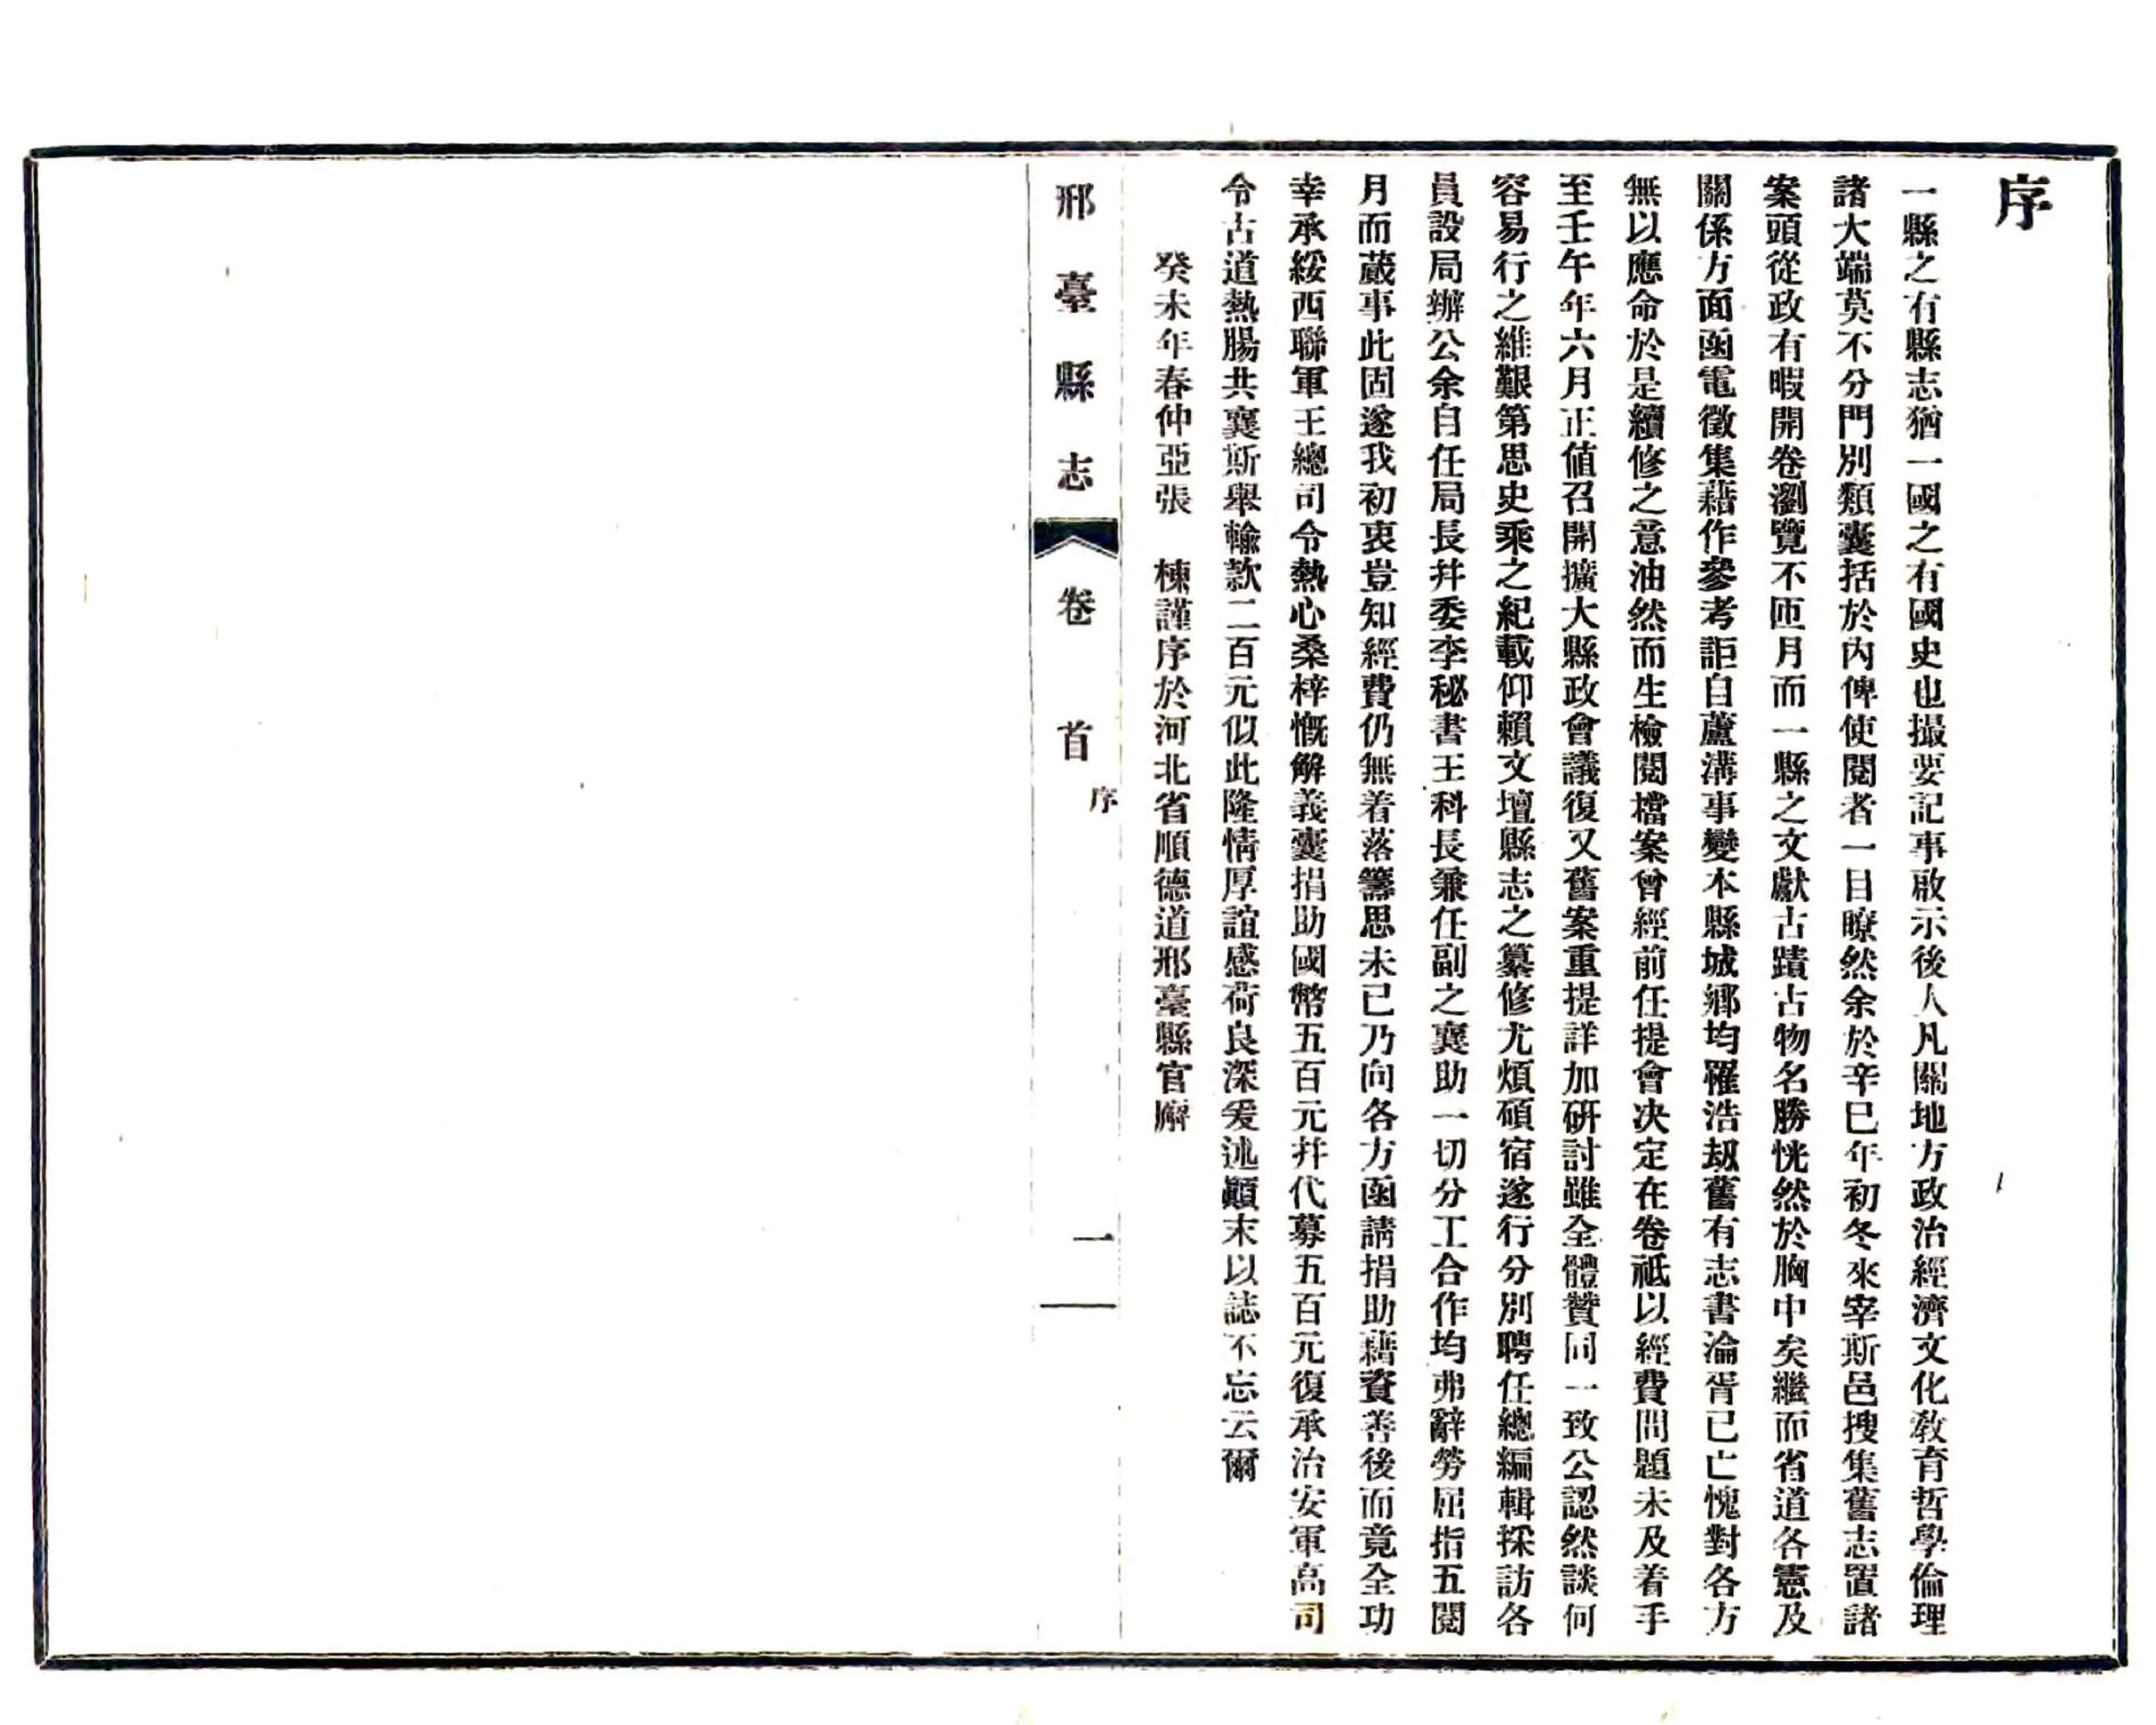 序
一縣之有縣志猶一國之有國史也撮要記事啟示後人凡關地方政治經濟文化教育哲學倫理
諸大端莫不分門別類囊括於內俾使閱者一目瞭然余於辛巳年初冬來宰斯邑搜集舊志置諸
案頭從政有暇開卷瀏覽不匝月而一縣之文獻古蹟古物名勝恍然於胸中矣繼而省道各憲及
關係方面函電徵集藉作參考詎自蘆溝事變本縣城鄉均罹浩劫舊有志書淪胥已亡愧對各方
無以應命於是續修之意油然而生檢閱檔案曾經前任提會決定在卷祗以經費問題未及着手
至壬午年六月正值召開擴大縣政會議復又舊案重提詳加研討雖全體贊同一致公認然談何
容易行之維艱第思史乘之紀載仰賴文壇縣志之纂修尤煩碩宿遂行分別聘任總編輯採訪各
員設局辦公余自任局長幷委李秘書王科長兼任副之襄助一切分工合作均弗辭勞屈指五閱
月而蕆事此固遂我初衷豈知經費仍無着落籌思未已乃向各方函請捐助藉資善後而竟全功
幸承綏西聯軍王總司令熱心桑梓慨解義囊捐助國幣五百元幷代募五百元復承治安軍高司
令古道熱腸共襄斯舉輸款二百元似此隆情厚誼感荷良深爰述顚末以誌不忘云爾
癸未年春仲亞張　棟謹序於河北省順德道邢臺縣官廨
邢臺縣志　卷首　序　一